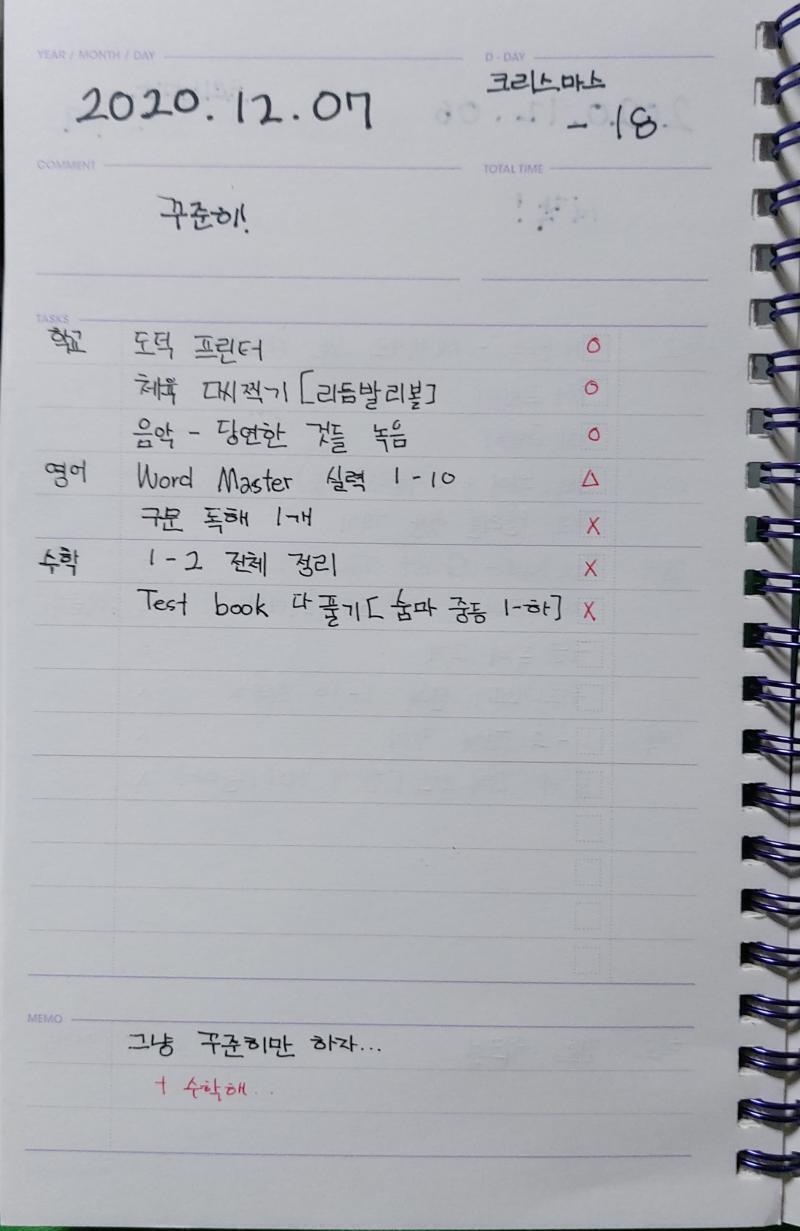 YEAR / MONTH / DAY
D - DAY
2020. 12. 07
크리스마스
- 18
COMMENT
TOTAL TIME
꾸준히!
TASKS
학교 도덕 프린터 O
체육 다시찍기 [리듬발리볼] O
음악 - 당연한 것들 녹음 O
영어 Word Master 실력 1-10 △
구문 독해 1개 X
수학 1-2 전체 정리 X
Test book 다 풀기 [ 숨마 중등 1-하] X
MEMO
그냥 꾸준히만 하자...
+ 수학해...